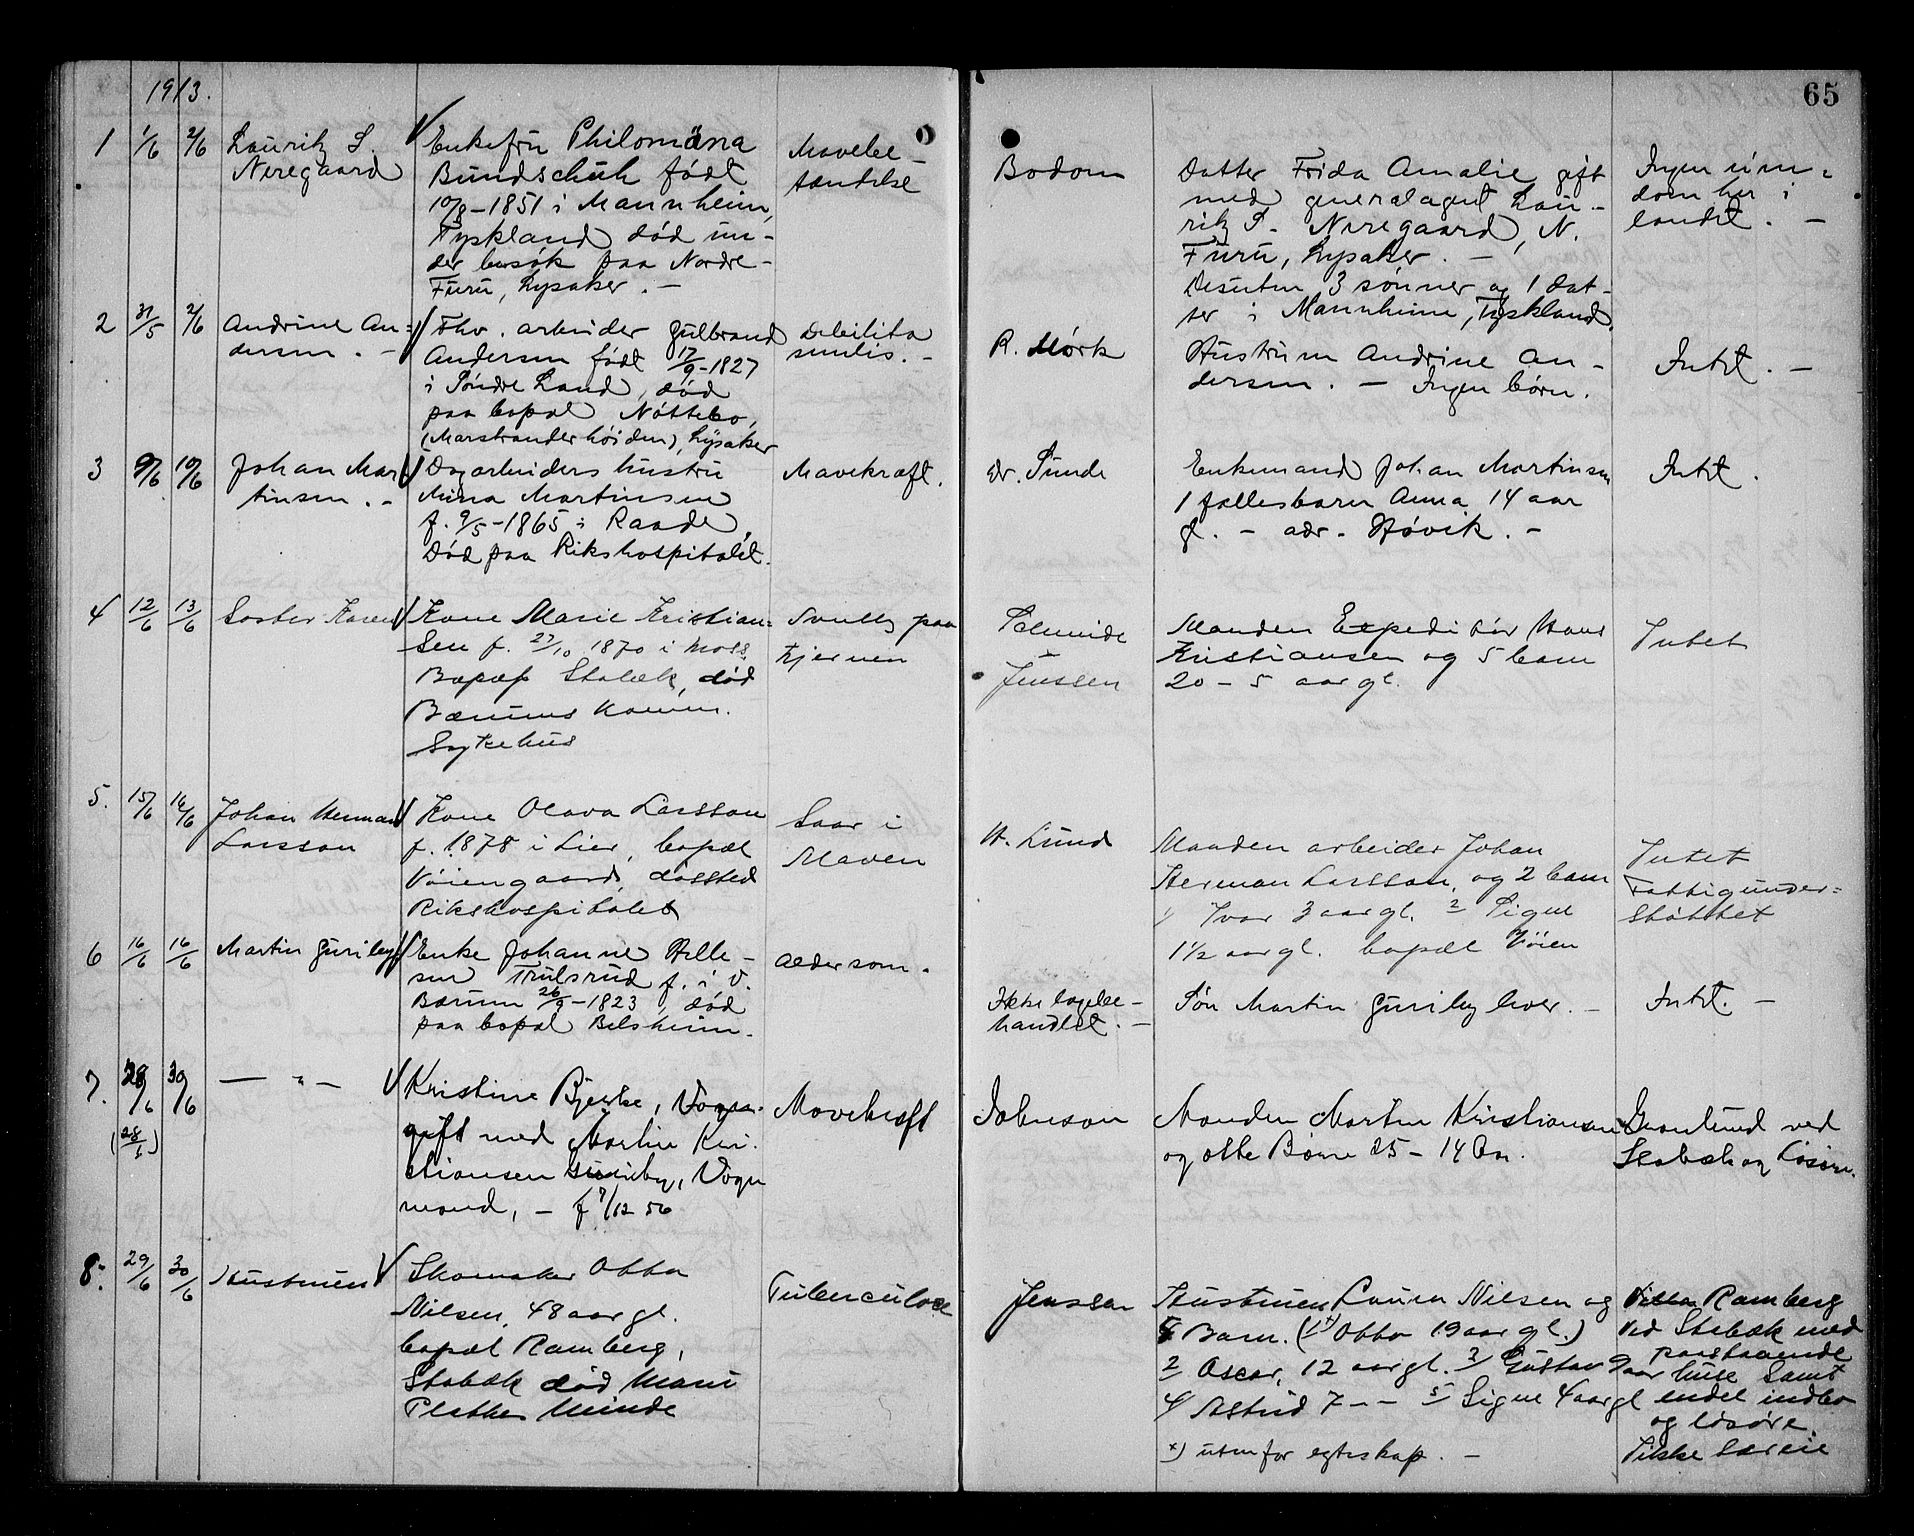 1913.
65
1 1/6 2/6 Lauritz S.
Neregaard
Enkefru Philomäna
Bundschuh født
10/8-1851 i Mannheim,
Tyskland død un-
der besøk paa Nordre-
Furu, Lysaker. -
Mavebe-
tændelse
Bodom
Datter Frida Amalie gift
med generalagent Lau-
ritz S. Neregaard, N.
Furu, Lysaker. -
Desuten 3 sønner og 1 dat-
ter i Mannheim, Tyskland.
Ingen eien-
dom her i
landet. -
2 31/5 2/6 Andrine An-
dersen. -
Fhv. arbeider Gulbrand
Andersen født 17/9-1827
i Søndre Land, død
paa bopæl Nøttebo,
(Marstranderhøiden), Lysaker
Debilita
senilis. -
R. Mørk
Hustruen Andrine An-
dersen. - Ingen børn.
Intet. -
3 9/6 10/6 Johan Mar
tinsen. -
Dagarbeiders hustru
Mina Martinsen
f. 9/5-1865 i Raade,
Død paa Rikshospitalet.
Mavekræft.
dr. Sunde
Enkemand Johan Martinsen
1 fællesbarn Anna 14 aar
gl. - adr. Høvik. -
Intet.
4 12/6 13/6 Søster Karen
Kone Marie Kristian-
sen f. 27/10 1870 i Moss
Bopæl Stabæk, død
Bærums Komm.
Sykehus
Svulst paa
Hjernen
Jenssen
Manden Expeditør Hans
Kristiansen og 5 barn
20 - 5 aar gl.
Intet
5. 15/6 16/6 Johan Herman
Larsson
Kone Olava Larsson
f. 1878 i Lier, bopæl
Vøiengaard, dødsted
Rikshospitalet
Saar i
Maven
H. Lund
Manden arbeider Johan
Herman Larsson, og 2 barn
1/ Ivar 3 aar gl. 2 Signe
1 1/2 aar gl. bopæl Vøien
Intet
Fattigunder-
støttet
6 16/6 16/6 Martin Gunleby
Enke Johanne Helle-
sen Trulsrud f. i V.
Bærum 26/9-1823, død
paa bopæl Belsheim.
Alderdom.
Ikke lægebe-
handlet. -
Søn Martin Gunleby lever. -
Intet. -
7. 29/6 30/6 — " —
(28/6)
Kristine Bjerke, Vogn-
gift med Martin Kri-
stiansen Gunleby, Vogn
mand, - f 7/12 56
Mavekræft
Johnson
Manden Martin Kristiansen
og otte Børn 25 - 14 Aar.
Granlund ved
Stabæk og Løsøre.
8. 29/6 30/6 Hustruen
Skomaker Otto
Nilsen, 48 aar gl.
bopæl Ramberg,
Stabæk død Marie
Plathes Minde
Tuberculose
Jenssen
Hustruen Laura Nilsen og
5 Barn. (1x) Otto 19 aar gl.)
2 Oscar, 12 aar gl. 3/ Gustav 9 aar
4/ Astrid 7 - - 5 Signe 4 aar gl
x) utenfor egteskap. -
Villa Ramberg
ved Stabæk med
paastaaende
huse samt
endel indbo
og løsøre.
Ikke særeie